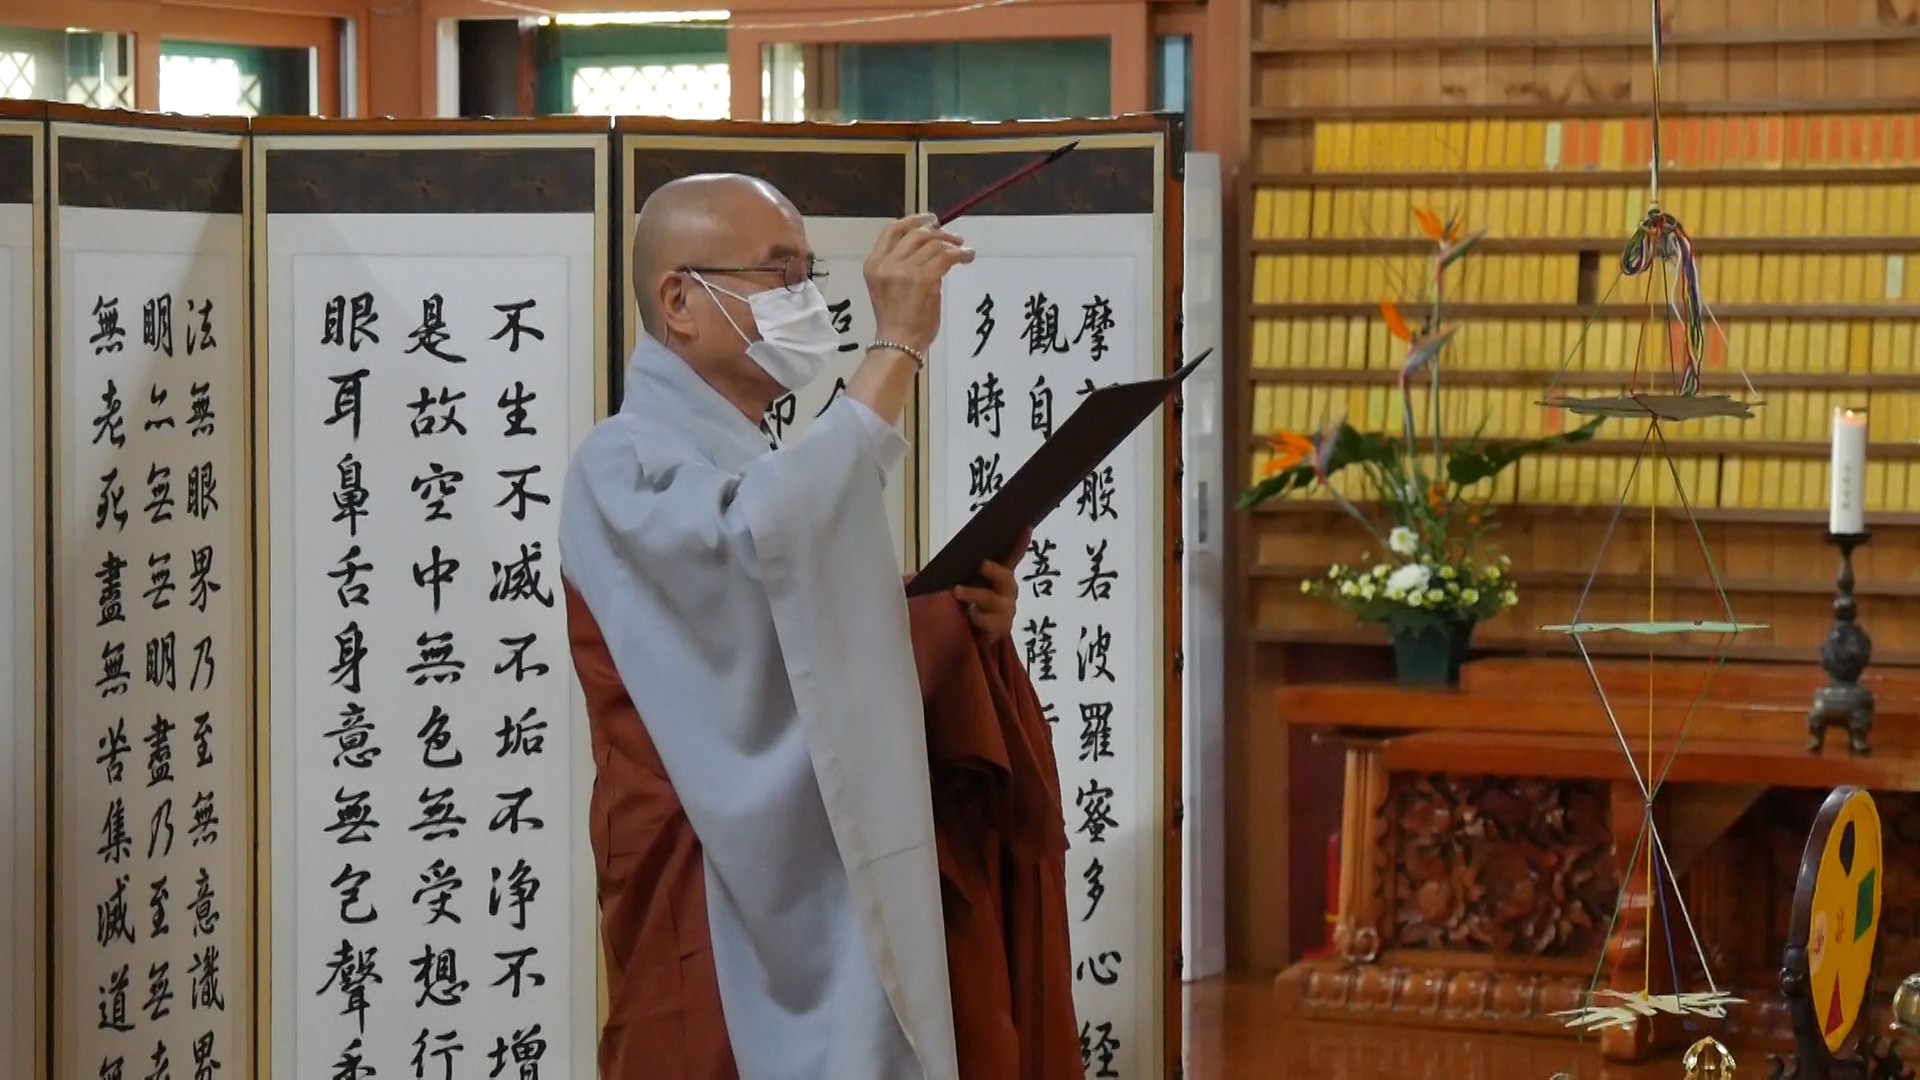 摩般若波羅蜜多心経
觀自菩薩
多時照
不生不滅不垢不浄不增
是故空中無色無受想行
眼耳鼻舌身意無色聲香
法無眼界乃至無意識界
明亦無無明盡乃至無老
無老死盡無苦集滅道無